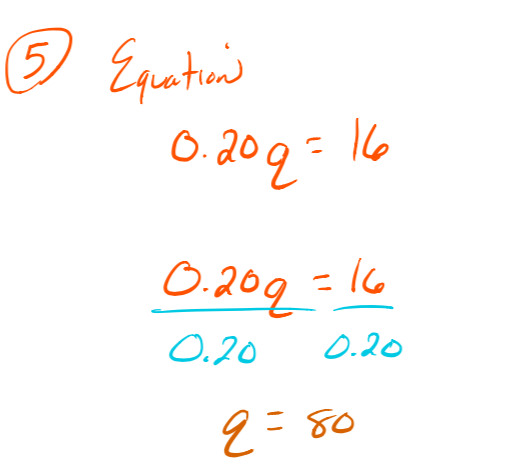 5 Equation
0.20q = 16
0.20q = 16
0.20 0.20
q = 80